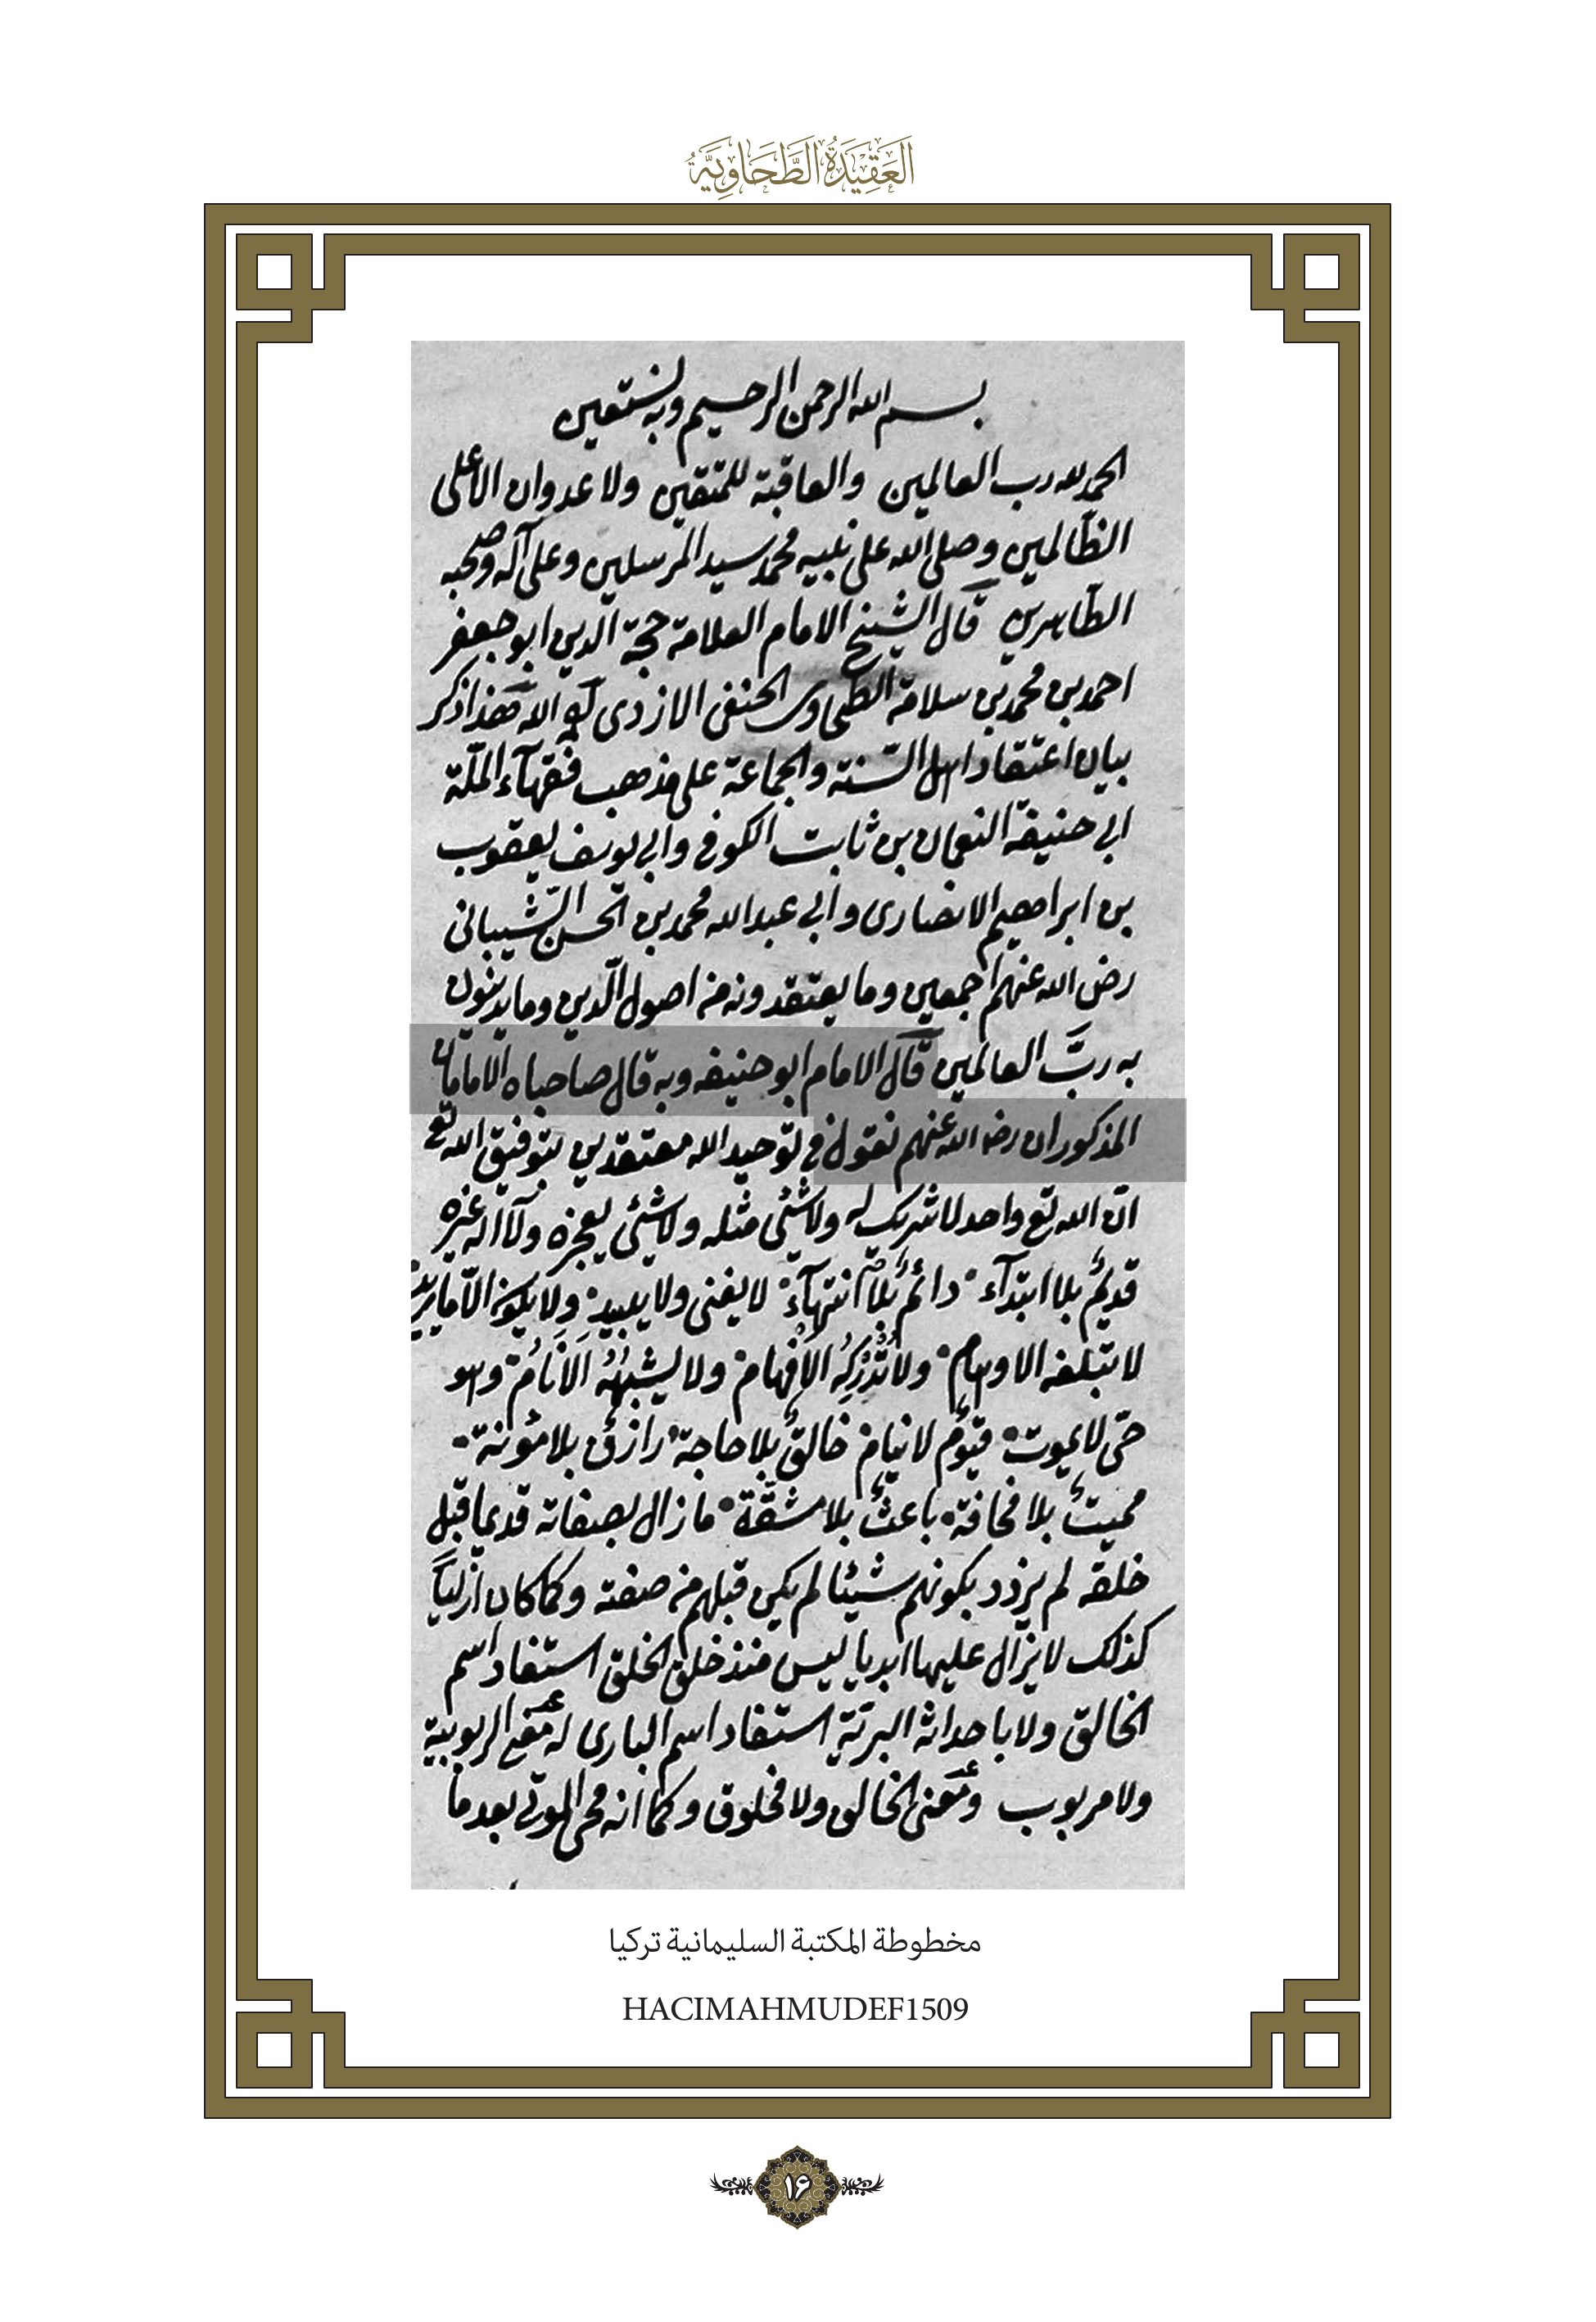 العَقِيْدَةُ الطَّحَاوِيَّةُ
بسم الله الرحمن الرحيم وبه نستعين
الحمد لله رب العالمين والعاقبة للمتقين ولا عدوان الا على
الظّالمين وصلى الله على نبيه محمد سيد المرسلين وعلى آله وصحبه
الطاهرين قال الشيخ الامام العلامة حجة الدين ابو جعفر
احمد بن محمد بن سلامة الطحاوى الحنفى الازدى الله هذا ذكر
بيان اعتقاد اهل السّنة والجماعة على مذهب فقهآء الملّة
ابى حنيفة النعمان بن ثابت الكوفى وابى يوسف يعقوب
بن ابراهيم الانصارى وابى عبد الله محمد بن الحسن الشّيبانى
رضى الله عنهم اجمعين وما يعتقدونه من اصول الدّين وما يدينون
به ربّ العالمين قال الامام ابو حنيفه وبه قال صاحباه الامامان
المذكوران رضى الله عنهم نقول فى توحيد الله معتقدين بتوفيق الله تع
انّ الله تع واحد لا شريك له ولا شئى مثله ولا شئى يعجزه ولا اله غيره
قديمٌ بلا ابتدآء دائمٌ بلا انتهآء لا يفنى ولا يبيد ولا يكون الّا ما يريد
لا تبلغه الاوهام ولا تُدْرِكُه الاَفْهام ولا يشبهُهُ الاَنَامُ وهو
حىّ لا يموت قيّوم لا ينام خالقٌ بلا حاجة رازقٌ بلا مؤنة
مميتٌ بلا مخافة باعثٌ بلا مشقّة ما زال بصفاته قديما قبل
خلقه لم يزدد بكونهم شيئا لم يكن قبلهم من صفته وكما كان ازليّاً
كذلك لا يزال عليها ابديا ليس منذ خلق الخلق استفاد اسم
الخالق ولا باحداثه البريّة استفاد اسم البارى له معنى الربوبية
ولا مربوب ومعنى الخالق ولا مخلوق وكما انه محى الموتى بعد ما
مخطوطة المكتبة السليمانية تركيا
HACIMAHMUDEF1509
١٦